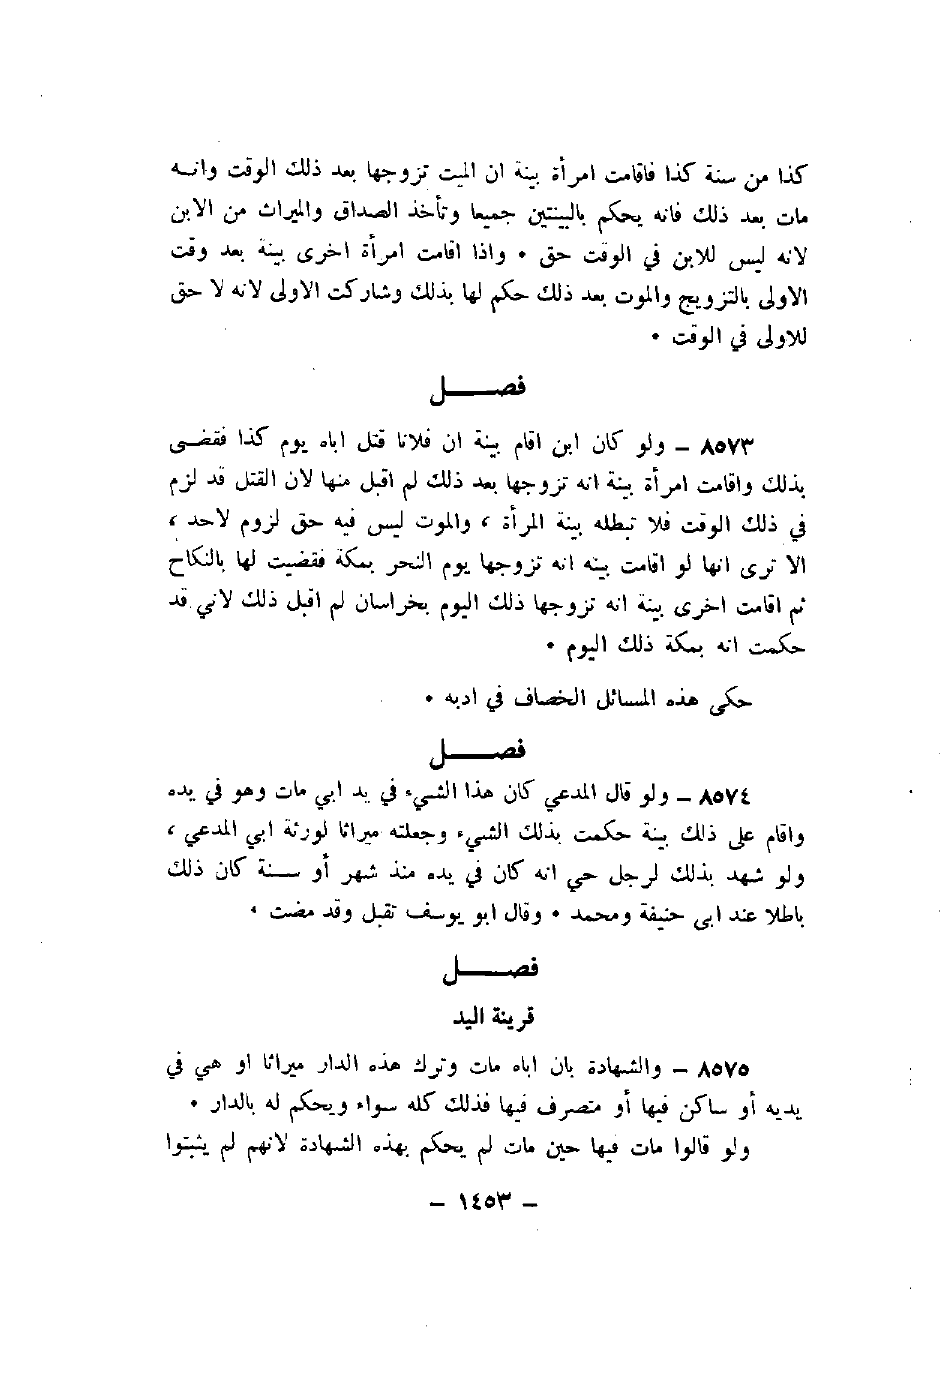 كذا من سنة كذا فاقامت امرأة بينة ان الميت تزوجها بعد ذلك الوقت وانه
مات بعد ذلك فانه يحكم بالبينتين جميعا وتأخذ الصداق والميراث من الابن
لانه ليس للابن في الوقت حق • واذا اقامت امرأة اخرى بينة بعد وقت
الاولى بالتزويج والموت بعد ذلك حكم لها بذلك وشاركت الاولى لانه لا حق
للاولى في الوقت •
فصل
٨٥٧٣ – ولو كان ابن اقام بينة ان فلانا قتل اباه يوم كذا فقضى
بذلك واقامت امرأة بينة انه تزوجها بعد ذلك لم اقبل منها لان القتل قد لزم
في ذلك الوقت فلا تبطله بينة المرأة ، والموت ليس فيه حق لزوم لاحد ،
الا ترى انها لو اقامت بينه انه تزوجها يوم النحر بمكة فقضيت لها بالنكاح
ثم اقامت اخرى بينة انه تزوجها ذلك اليوم بخراسان لم اقبل ذلك لاني قد
حكمت انه بمكة ذلك اليوم •
حكى هذه المسائل الخصاف في ادبه •
فصل
٨٥٧٤ – ولو قال المدعي كان هذا الشيء في يد ابي مات وهو في يده
واقام على ذلك بينة حكمت بذلك الشيء وجعلته ميراثا لورثة ابي المدعي ،
ولو شهد بذلك لرجل حي انه كان في يده منذ شهر أو سنة كان ذلك
باطلا عند ابى حنيفة ومحمد • وقال ابو يوسف تقبل وقد مضت •
فصل
قرينة اليد
٨٥٧٥ – والشهادة بان اباه مات وترك هذه الدار ميراثا او هي في
يديه أو ساكن فيها أو متصرف فيها فذلك كله سواء ويحكم له بالدار •
ولو قالوا مات فيها حين مات لم يحكم بهذه الشهادة لانهم لم يثبتوا
– ١٤٥٣ –